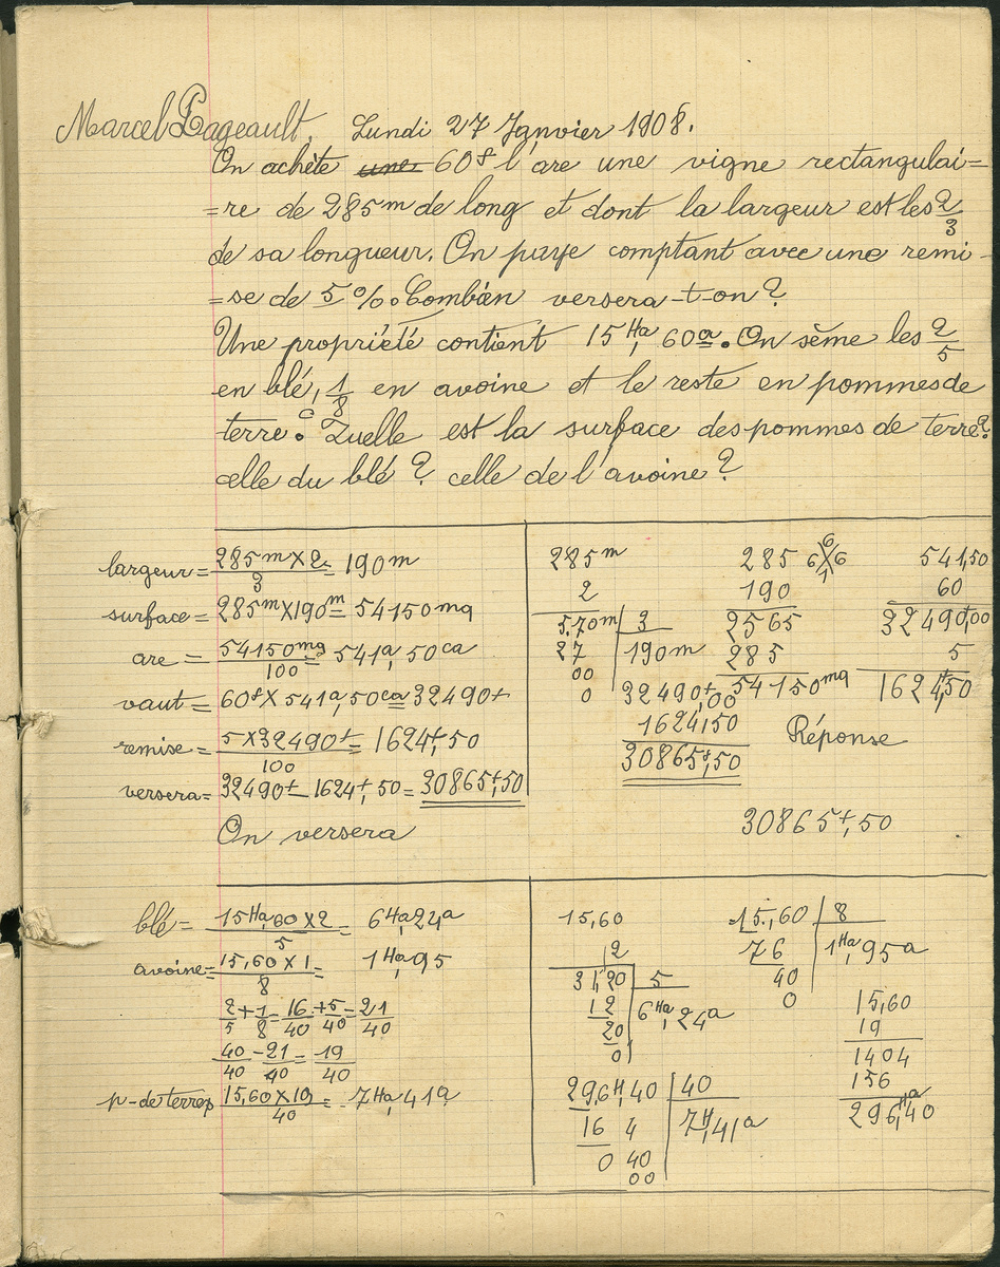 Marcel Pageault. Lundi 27 Janvier 1908.
On achète une 60f l'are une vigne rectangulai=
=re de 285m de long et dont la largeur est les 2/3
de sa longueur. On paye comptant avec une remi-
=se de 5%. Combien versera-t-on?
Une propriété contient 15Ha, 60a. On sème les 2/5
en blé, 1/8 en avoine et le reste en pommes de
terre. Quelle est la surface des pommes de terre?
celle du blé? celle de l'avoine?
largeur = 285m X 2 / 3 = 190m
surface = 285m X 190m = 54150mq
are = 54150mq / 100 = 541a, 50ca
vaut = 60f X 541a, 50ca = 32490f
remise = 5 X 32490f / 100 = 1624f, 50
versera = 32490f - 1624f, 50 = 30865f, 50
On versera
285m
2
5.70m | 3
27 | 190m
00
0
285 6 X 6 6 1
190
2565
285
54150mq
541,50
60
32490,00
5
1624f,50
32490f,00
1624,50
30865f,50
Réponse
30865f, 50
blé = 15Ha,60 X 2 / 5 = 6Ha,24a
avoine = 15,60 X 1 / 8 = 1Ha,95
2/5 + 1/8 = 16/40 + 5/40 = 21/40
40/40 - 21/40 = 19/40
p-de terres 15,60 X 19 / 40 = 7Ha,41a
15,60
2
31,20 | 5
12 | 6Ha,24a
20
0
15,60 | 8
76 | 1Ha,95a
40
0
15,60
19
1404
156
296Ha,40
296H,40 | 40
16 4 | 7H,41a
0 40
00